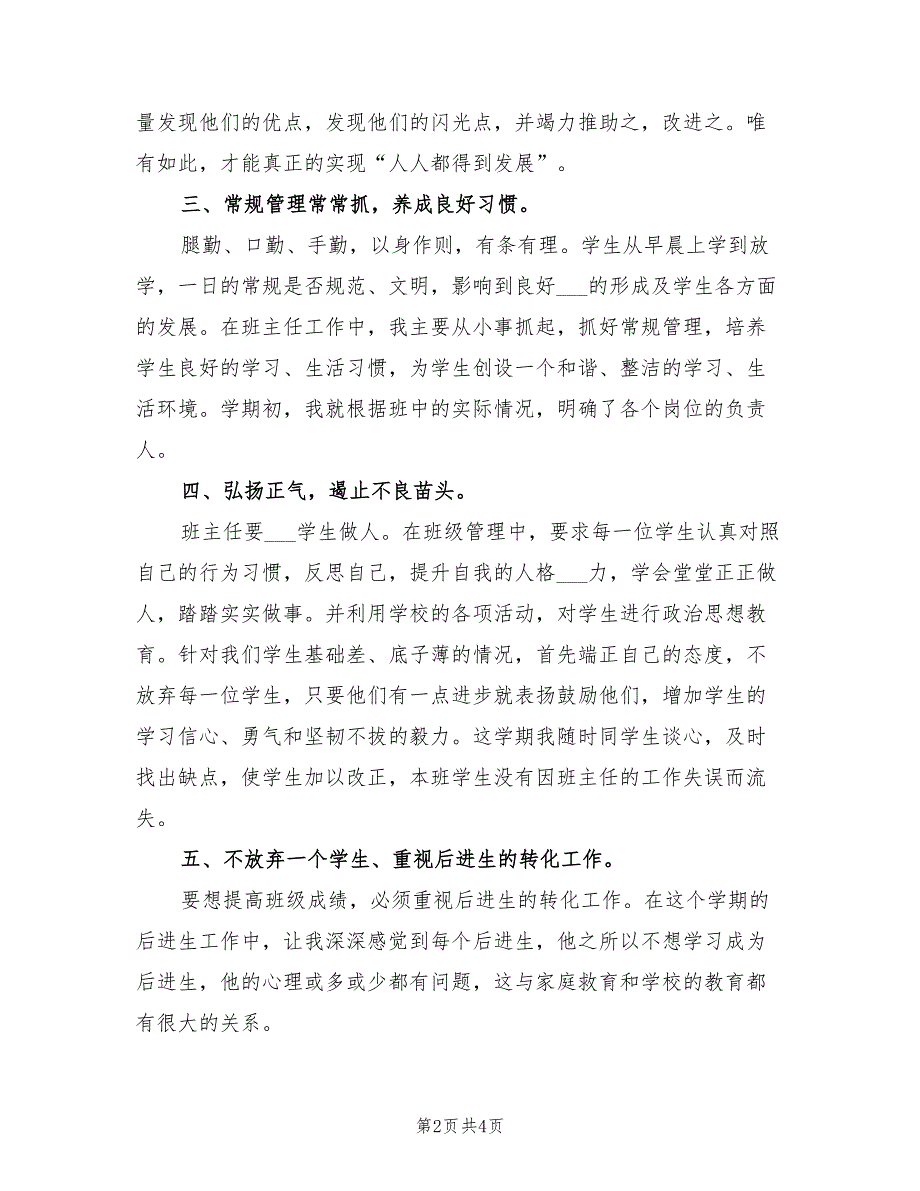 量发现他们的优点，发现他们的闪光点，并竭力推助之，改进之。唯
有如此，才能真正的实现“人人都得到发展”。
三、常规管理常常抓，养成良好习惯。
腿勤、口勤、手勤，以身作则，有条有理。学生从早晨上学到放
学，一日的常规是否规范、文明，影响到良好___的形成及学生各方面
的发展。在班主任工作中，我主要从小事抓起，抓好常规管理，培养
学生良好的学习、生活习惯，为学生创设一个和谐、整洁的学习、生
活环境。学期初，我就根据班中的实际情况，明确了各个岗位的负责
人。
四、弘扬正气，遏止不良苗头。
班主任要___学生做人。在班级管理中，要求每一位学生认真对照
自己的行为习惯，反思自己，提升自我的人格___力，学会堂堂正正做
人，踏踏实实做事。并利用学校的各项活动，对学生进行政治思想教
育。针对我们学生基础差、底子薄的情况，首先端正自己的态度，不
放弃每一位学生，只要他们有一点进步就表扬鼓励他们，增加学生的
学习信心、勇气和坚韧不拔的毅力。这学期我随时同学生谈心，及时
找出缺点，使学生加以改正，本班学生没有因班主任的工作失误而流
失。
五、不放弃一个学生、重视后进生的转化工作。
要想提高班级成绩，必须重视后进生的转化工作。在这个学期的
后进生工作中，让我深深感觉到每个后进生，他之所以不想学习成为
后进生，他的心理或多或少都有问题，这与家庭救育和学校的教育都
有很大的关系。
第2页共4页